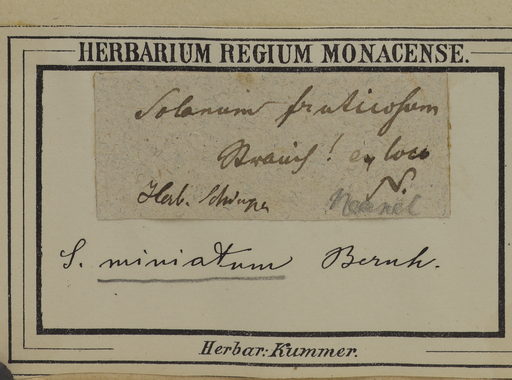 HERBARIUM REGIUM MONACENSE.
Solanum fruticosum
Strauch! ex loco
N.
Herb. Schimper
S. miniatum Bernh.
Herbar: Kummer.